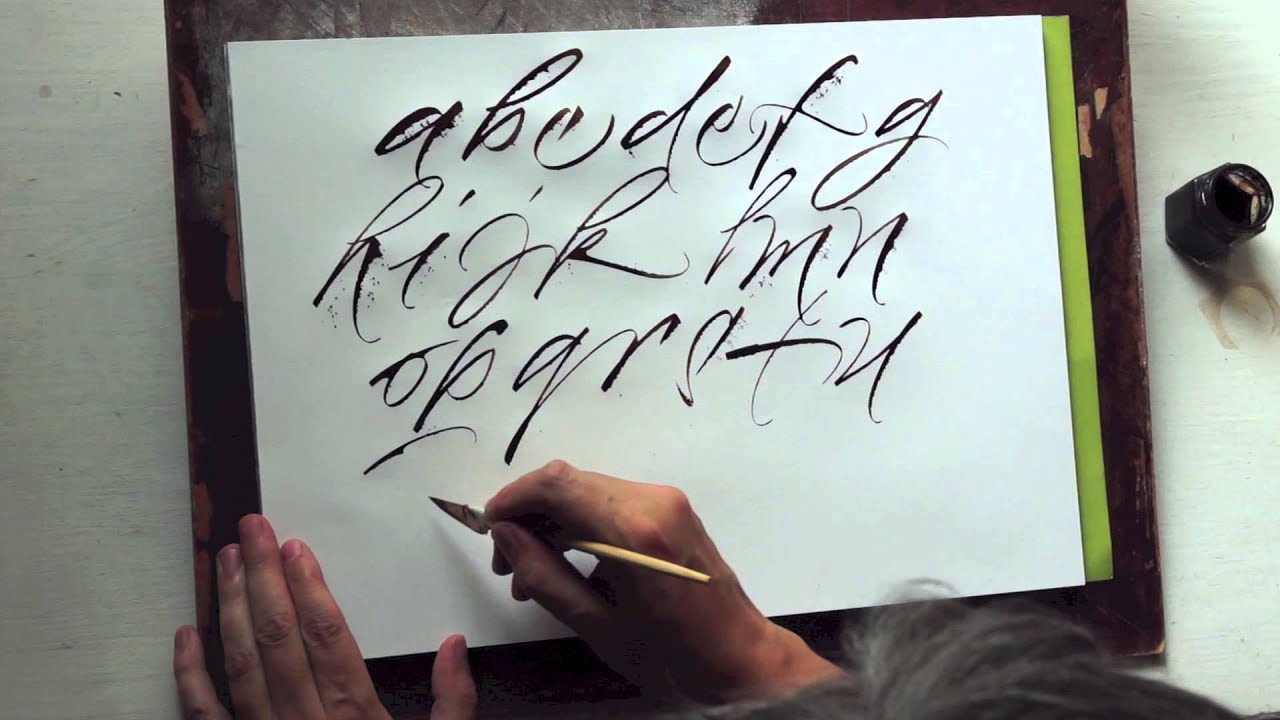 abcdefg
hijklmn
opqrstu